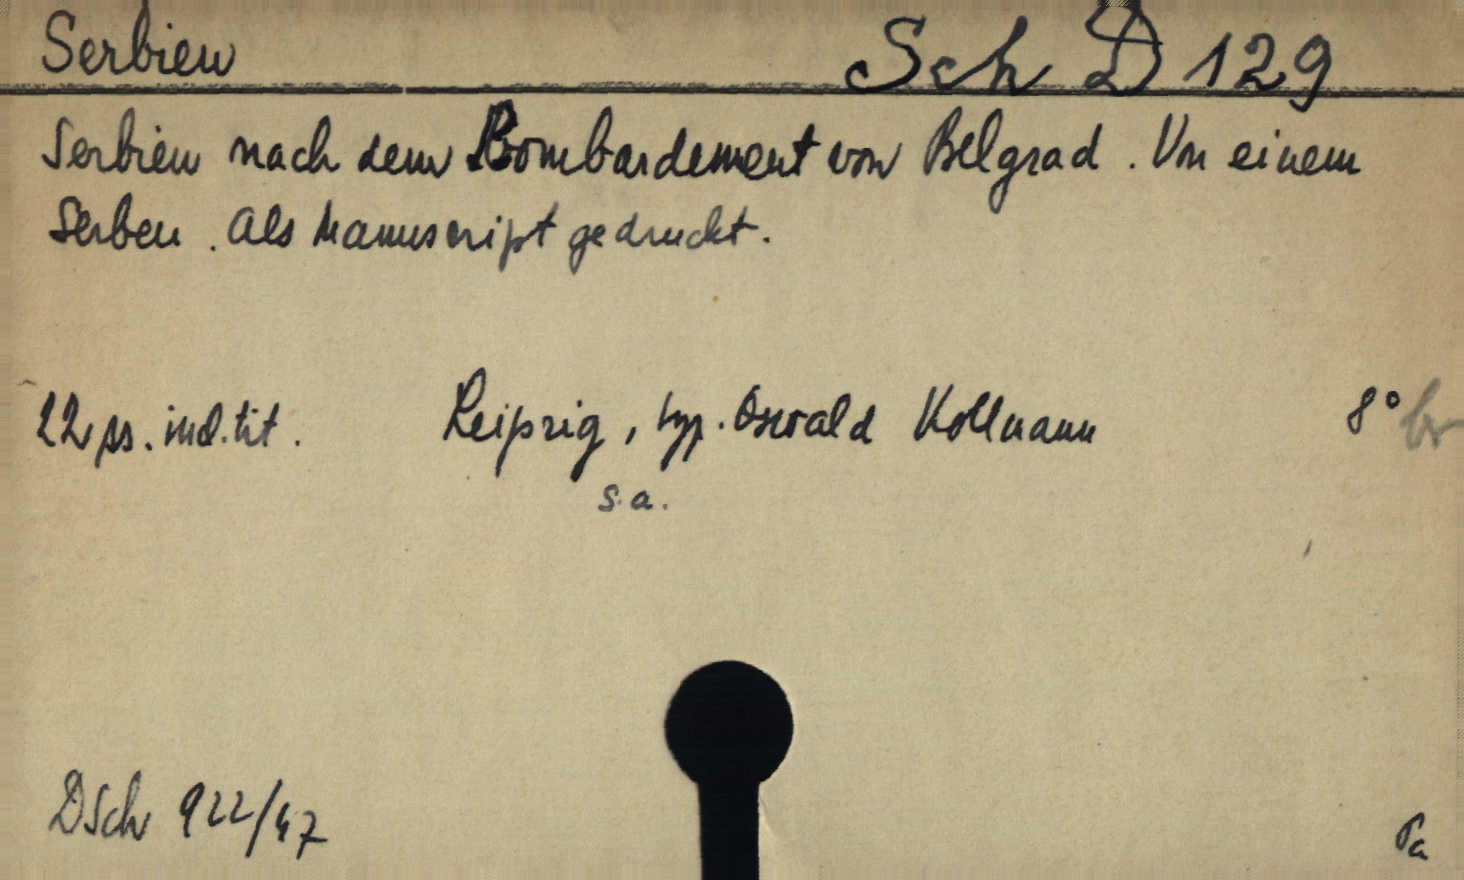 Serbien Sch D 129
Serbien nach dem Bombardement von Belgrad. Von einem
Serben. Als Manuscript gedruckt.
22 ps. incl. tit. Leipzig, typ. Oswald Kollmann 8° br
s.a.
DSch 922/47 Pa